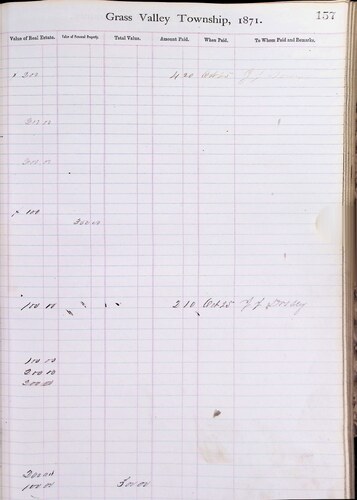 Grass Valley Township, 1871.
157
Value of Real Estate. Value of Personal Property. Total Value. Amount Paid. When Paid. To Whom Paid and Remarks.
200 4 20 Oct 25 J J
200 00
200 00
100
200 00
100 00 2 10 Oct 25 J J
100 00
200 00
200 00
200 00
100 00 300 00